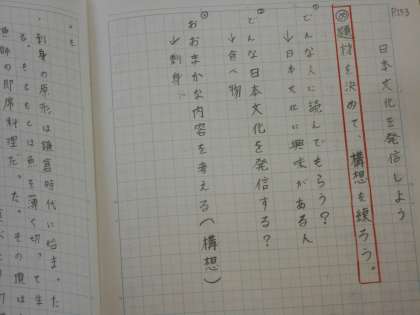 P153
日本文化を発信しよう
め 題材を決めて、構想を練ろう。
どんな人に読んでもらう?
↓日本文化に興味がある人
どんな日本文化を発信する?
↓食べ物
おおまかな内容を考える(構想)
↓刺身
刺身の原形は鎌倉時代に始まった
る。もともとは魚を薄く切って生
師の即席料理だった。その頃は